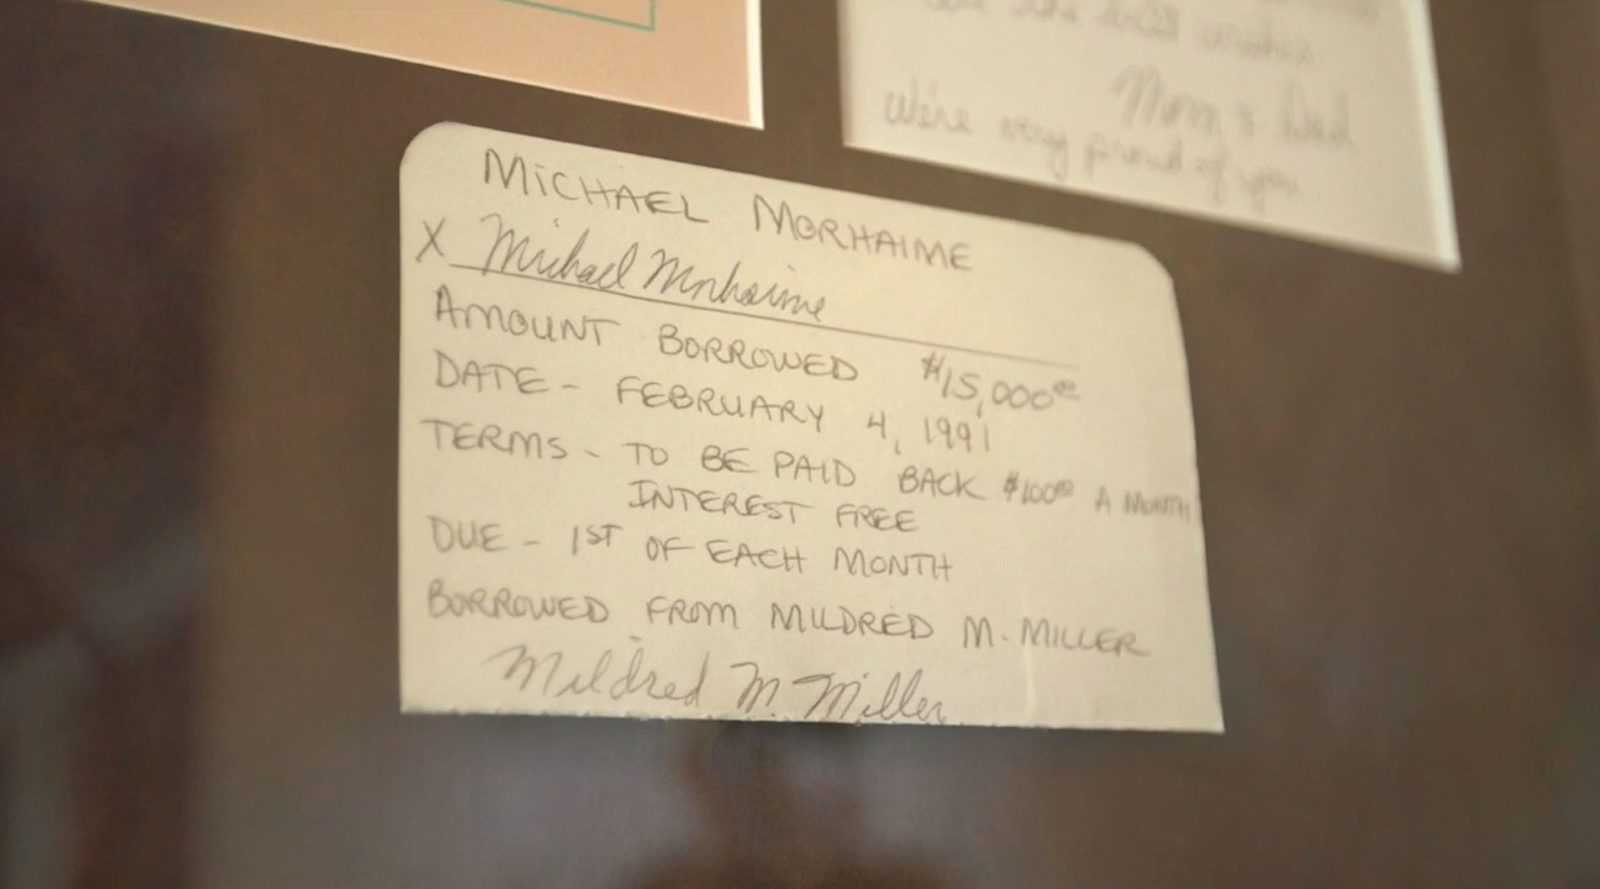 best wishes
Mom & Dad
We're very proud of you
MICHAEL MORHAIME
X Michael Morhaime
AMOUNT BORROWED $15,000⁰⁰
DATE - FEBRUARY 4, 1991
TERMS - TO BE PAID BACK $100⁰⁰ A MONTH
INTEREST FREE
DUE - 1ST OF EACH MONTH
BORROWED FROM MILDRED M. MILLER
Mildred M. Miller